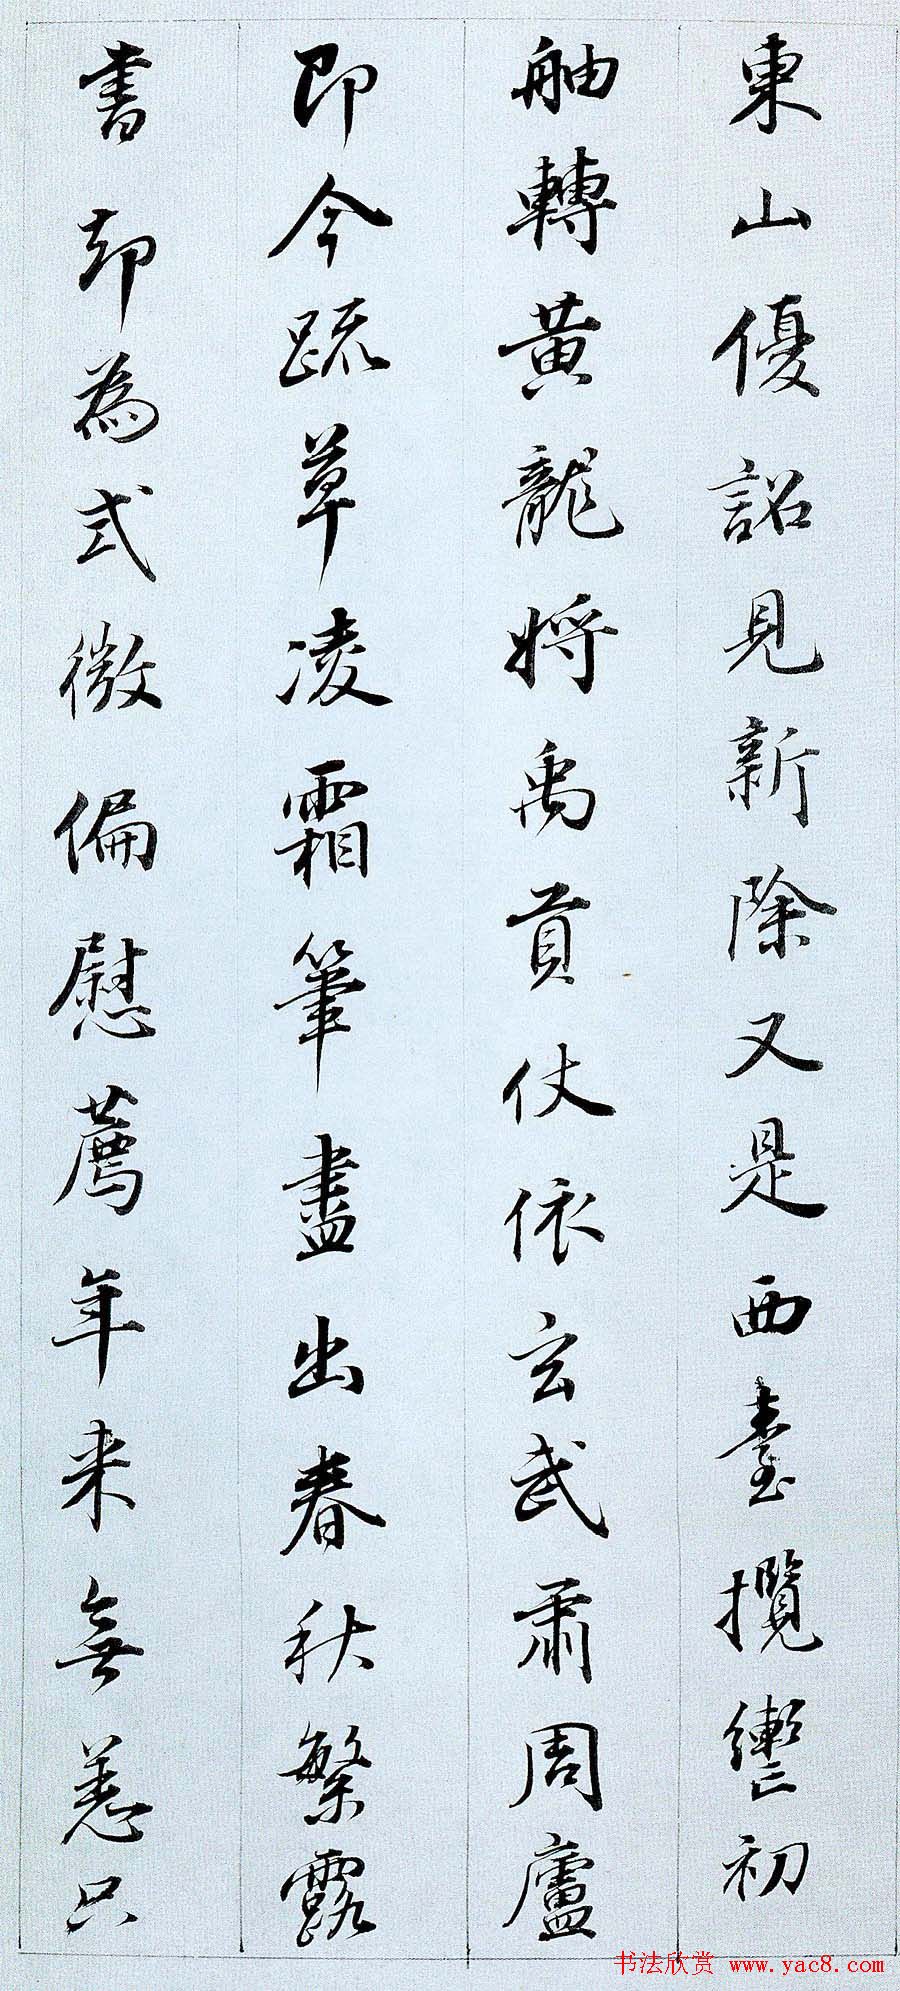 東山優詔見新除又是西臺攬轡初
舳轉黄龍將禹貢仗依玄武肅周廬
即今疏草凌霜筆盡出春秋繁露
書却為式微偏慰薦年来無恙只
书法欣赏 www.yac8.com